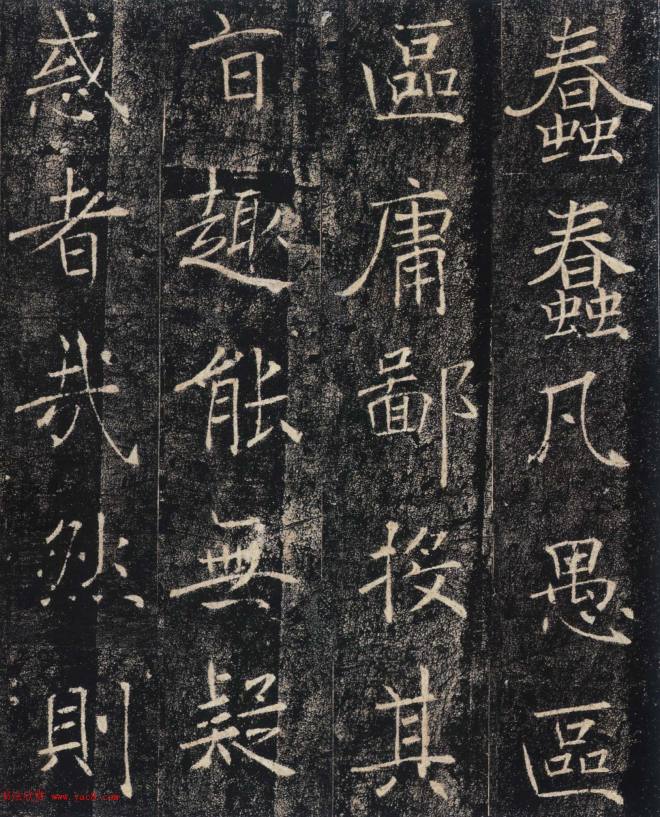 蠢蠢凡愚區
區庸鄙投其
旨趣能無疑
惑者哉然則
www.yac8.com